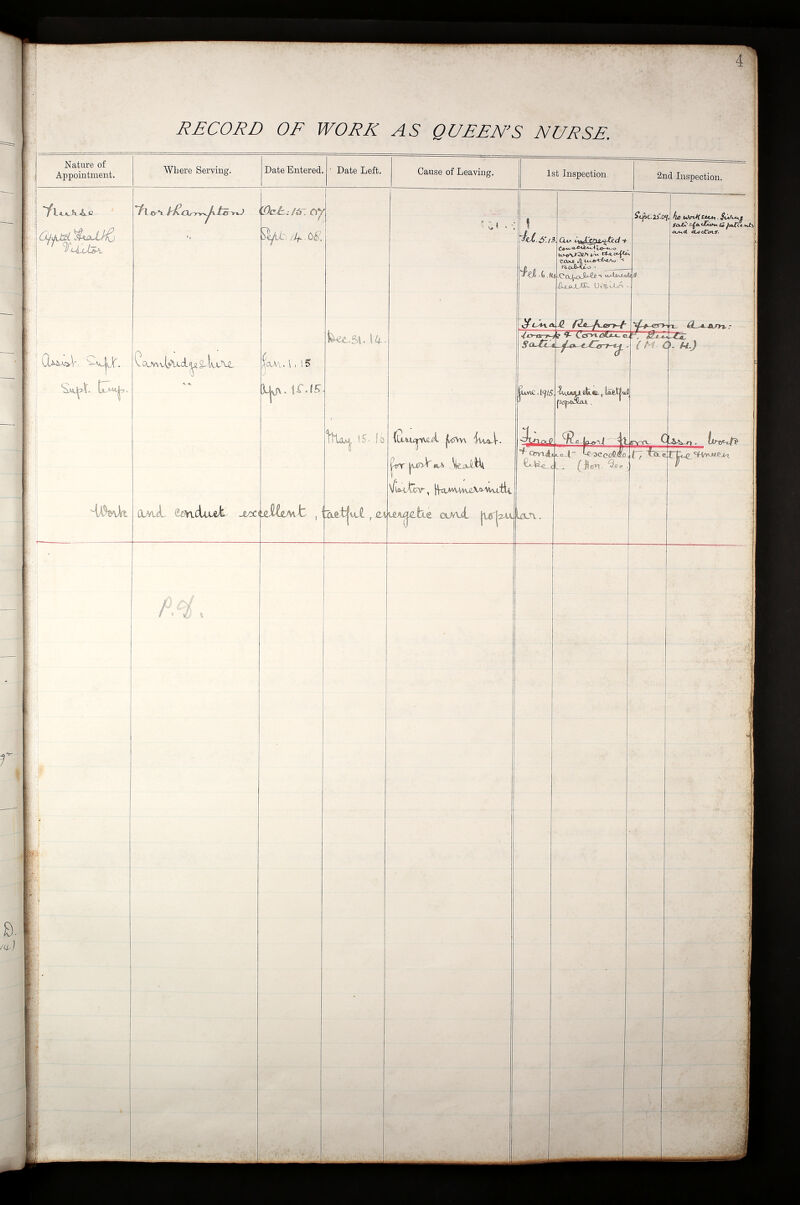 4
RECORD OF WORK AS QUEEN'S NURSE.
Nature of Appointment.
Where Serving.
Date Entered.
Date Left.
Cause of Leaving.
1st Inspection
2nd Inspection.
Nurse
Northampton
Oct: 15. 07
Apptd Health
Sept: 14. 08.
Visitor
Sept. 25.09. No work seen. Giving
satisfaction to patients
and doctors.
Feb. 5. 13. An interested +
conscientious
worker in the after
care of mothers +
babies.
Feb. 6. 14. Capable + interested
Health Visitor.
Dec. 31. 14.
Final Report from Assn:
work & Conduct. Quite
Satisfactory. (M. O. H.)
Assist. Supt. Cambridgeshire Jan. 1. 15
Supt. temp. " Apr. 15. 15.
June. 1915. Energetic, tactful
popular.
May 15. 16
Resigned from Inst.
for post as Health
Visitor, Hammersmith
Final Report from Assn. Work
+ conduct excellent, tactful +much
liked. (Hon. Sec.)
Work and conduct excellent, tactful, energetic and popular.